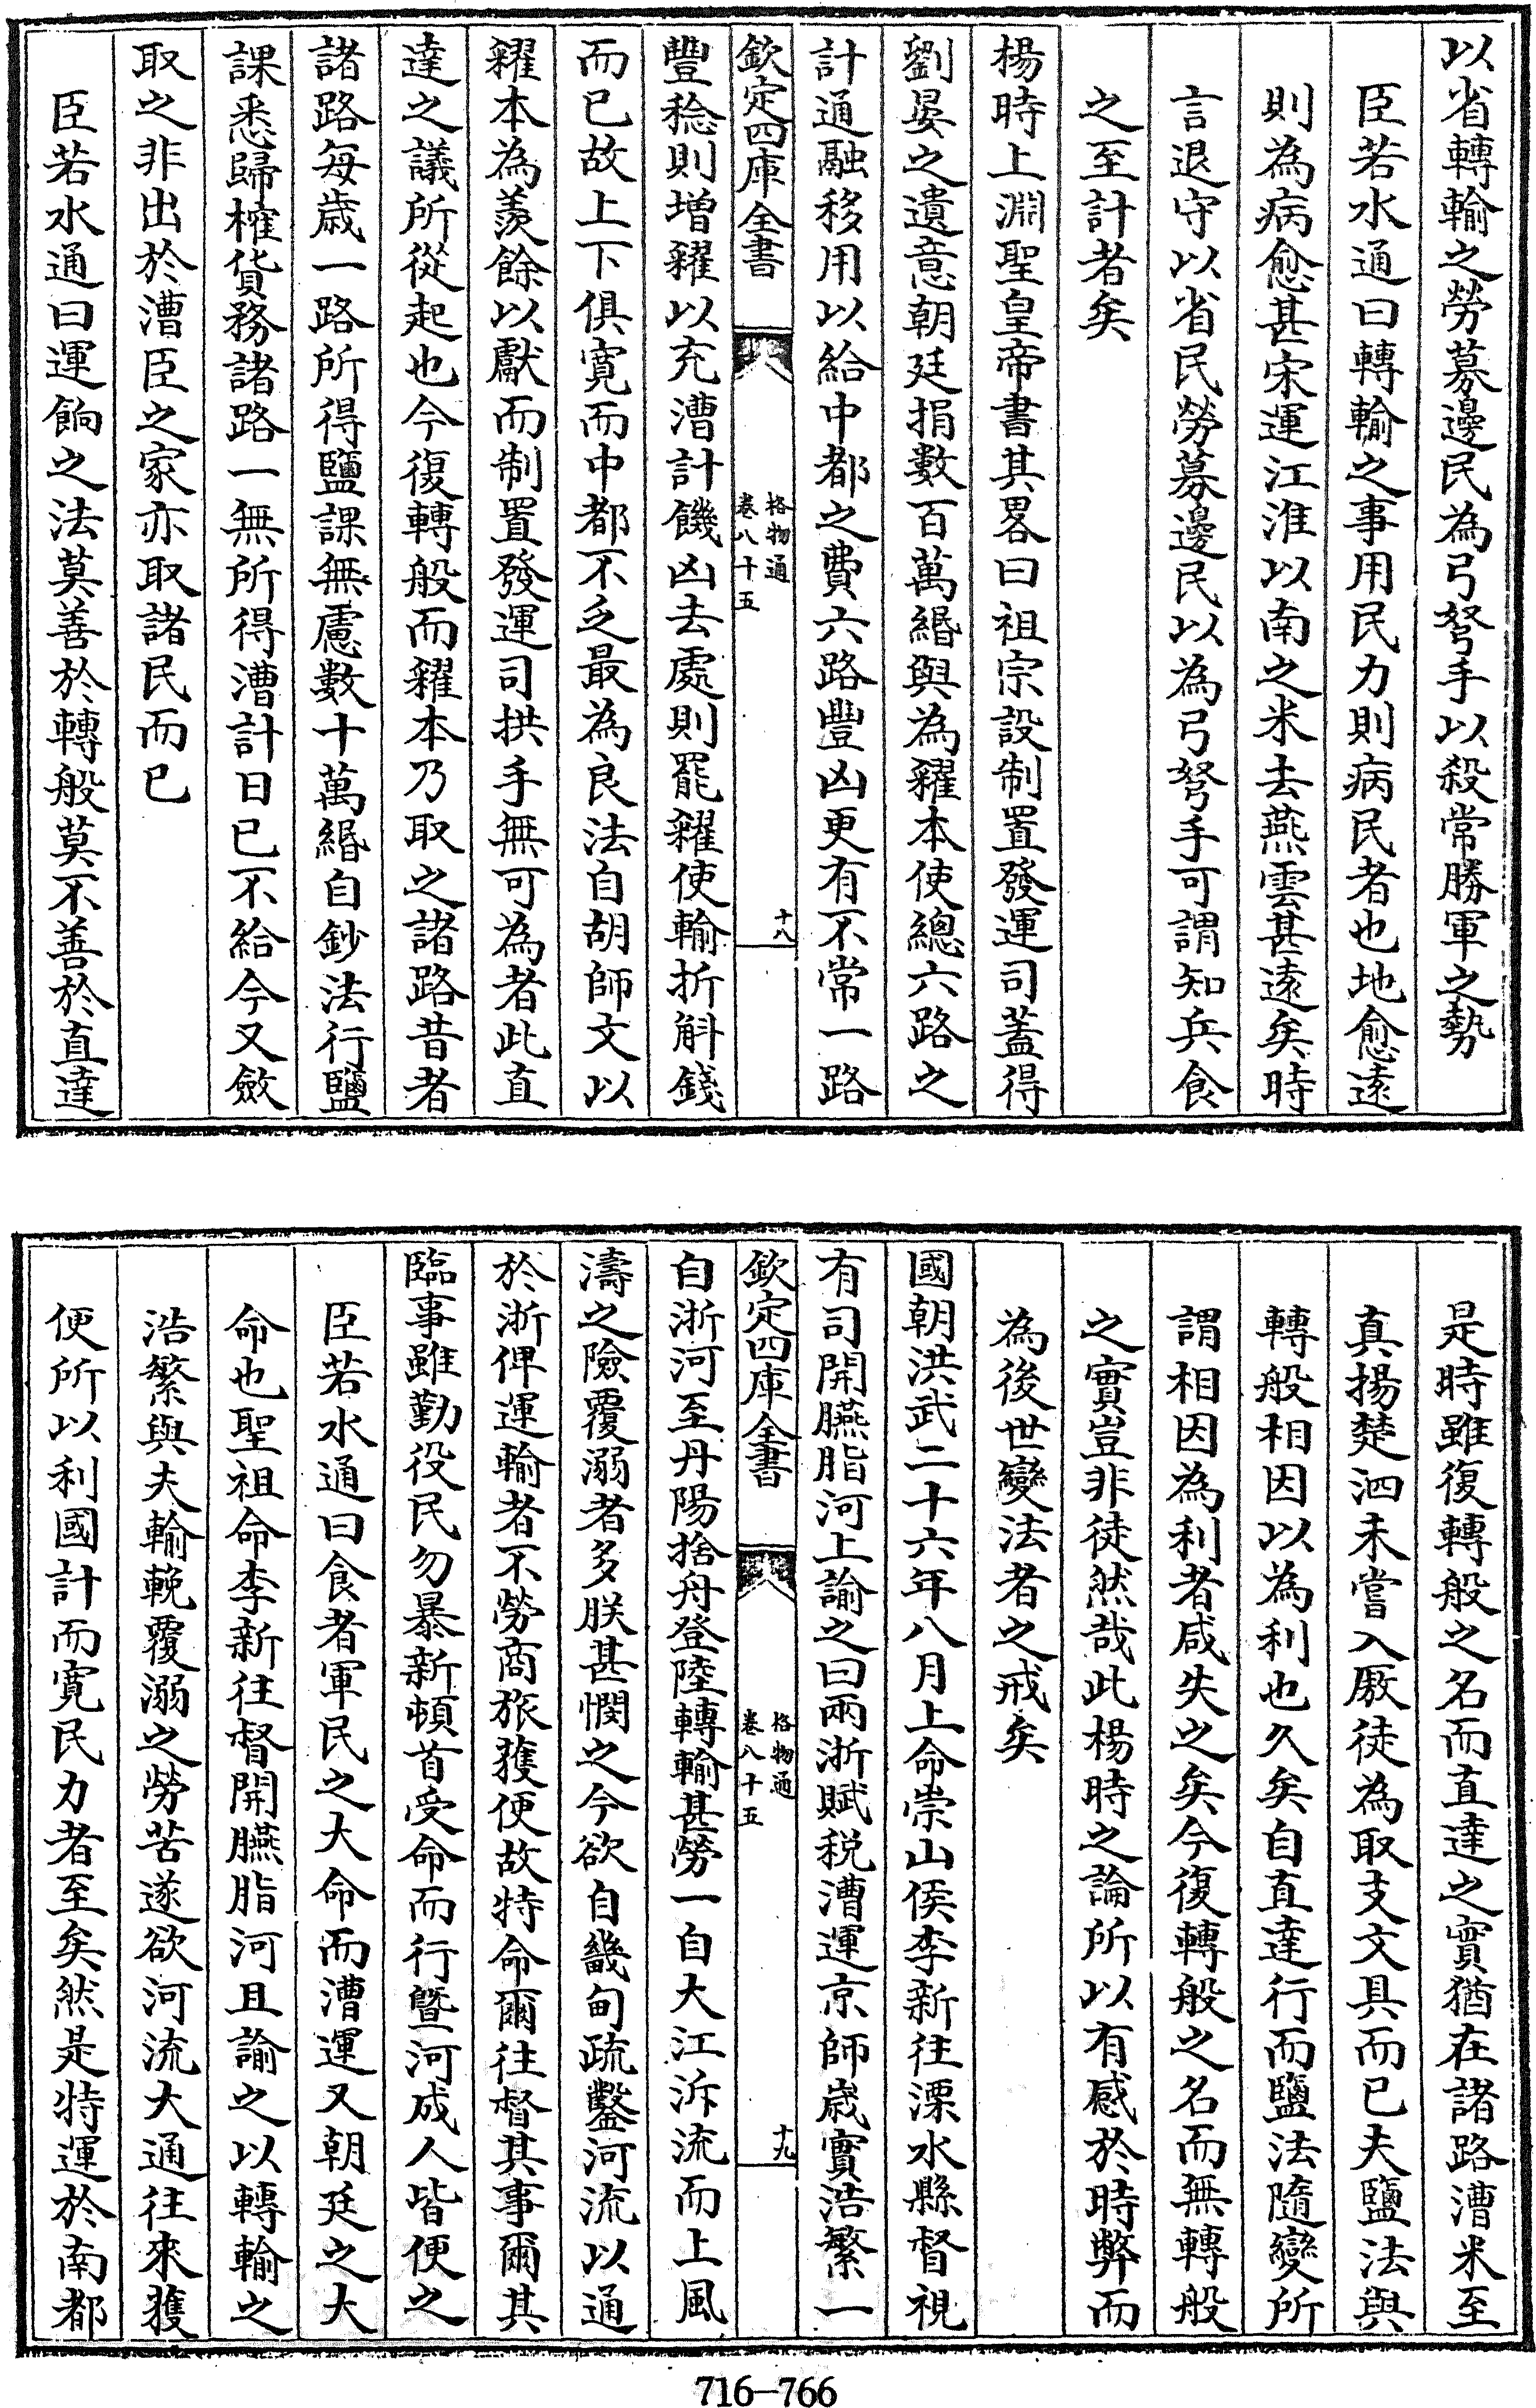 以省轉輸之勞募邊民為弓弩手以殺常勝軍之勢
臣若水通曰轉輸之事用民力則病民者也地愈遠
則為病愈甚宋運江淮以南之米去燕雲甚遠矣時
言退守以省民勞募邊民以為弓弩手可謂知兵食
之至計者矣
楊時上淵聖皇帝書其畧曰祖宗設制置發運司蓋得
劉晏之遺意朝廷捐數百萬緡與為糴本使總六路之
計通融移用以給中都之費六路豐凶更有不常一路
欽定四庫全書
格物通
卷八十五
十八
豐稔則增糴以充漕計饑凶去處則罷糴使輸折斛錢
而已故上下俱寛而中都不乏最為良法自胡師文以
糴本為羨餘以獻而制置發運司拱手無可為者此直
達之議所從起也今復轉般而糴本乃取之諸路昔者
諸路每歲一路所得鹽課無慮數十萬緡自鈔法行鹽
課悉歸榷貨務諸路一無所得漕計日已不給今又斂
取之非出於漕臣之家亦取諸民而已
臣若水通曰運餉之法莫善於轉般莫不善於直達
是時雖復轉般之名而直達之實猶在諸路漕米至
真揚楚泗未嘗入厫徒為取支文具而已夫鹽法與
轉般相因以為利也久矣自直達行而鹽法隨變所
謂相因為利者咸失之矣今復轉般之名而無轉般
之實豈非徒然哉此楊時之論所以有感於時弊而
為後世變法者之戒矣
國朝洪武二十六年八月上命崇山侯李新往溧水縣督視
有司開臙脂河上諭之曰兩浙賦税漕運京師歲實浩繁一
欽定四庫全書
格物通
卷八十五
十九
自浙河至丹陽捨舟登陸轉輸甚勞一自大江泝流而上風
濤之險覆溺者多朕甚憫之今欲自畿甸疏鑿河流以通
於浙俾運輸者不勞商旅獲便故特命爾往督其事爾其
臨事雖勤役民勿暴新頓首受命而行曁河成人皆便之
臣若水通曰食者軍民之大命而漕運又朝廷之大
命也聖祖命李新往督開臙脂河且諭之以轉輸之
浩繁與夫輸輓覆溺之勞苦遂欲河流大通往來獲
便所以利國計而寛民力者至矣然是特運於南都
716-766